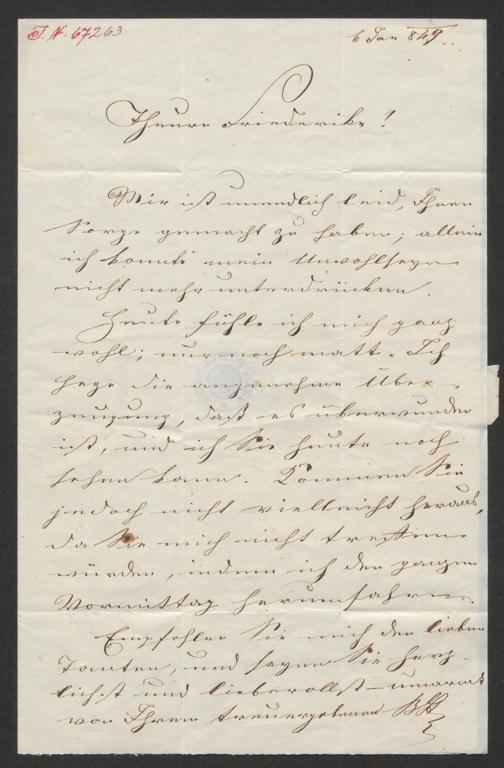 I. N. 67263
6 Jan 849
Theure Friederike!
Mir ist unendlich leid, Ihnen
Sorge gemacht zu haben; allein
ich konnte mein Unwohlseyn
nicht mehr unterdrücken.
Heute fühle ich mich ganz
wohl; nur noch matt. Ich
hege die angenehme Über-
zeugung, daß es überwunden
ist, und ich Sie heute noch
sehen kann. Kommen Sie
jedoch nicht vielleicht herauf,
da Sie mich nicht treffen
würden, indem ich den ganzen
Vormittag herumfahre.
Empfehlen Sie mich den lieben
Tanten, und seyen Sie herz-
lichst und liebevollst umarmt
von Ihrem treuergebenen